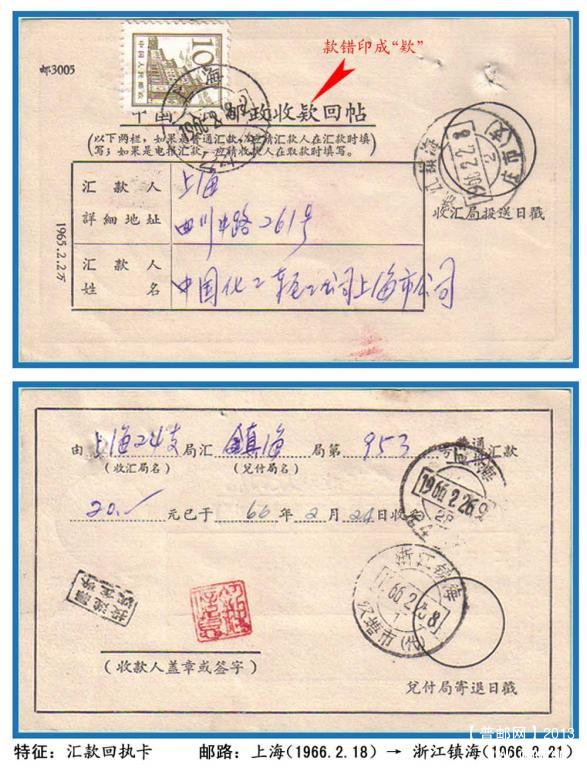 款错印成“欵”
邮3005
10
中国人民邮政
上海
1966.2.18
中国人民邮政收欵回帖
(以下两栏,如果是普通汇款,应请汇款人在汇款时填
写;如果是电报汇款,应请收款人在取款时填写。)
1966.2.2 8
庄市(代)
收汇局投送日戳
汇款人
詳細地址
上海
四川中路261号
汇款人
姓名
中国化工轻工公司上海市公司
1965.2.2万
由上海24支局汇鎮海局第953号普通汇款
(收汇局名) (兑付局名)
1966.2.26.9
20.-元已于66年2月24日收到
浙江镇海
(代)
(收款人盖章或签字)
兑付局寄退日戳
【普邮网】2013
特征:汇款回执卡 邮路:上海(1966.2.18) → 浙江镇海(1966.2.21)